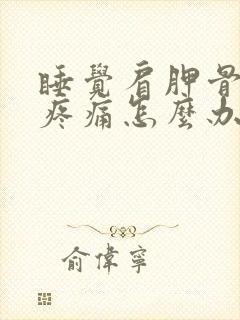 睡覺肩胛骨
疼痛怎麼办
俞偉寧